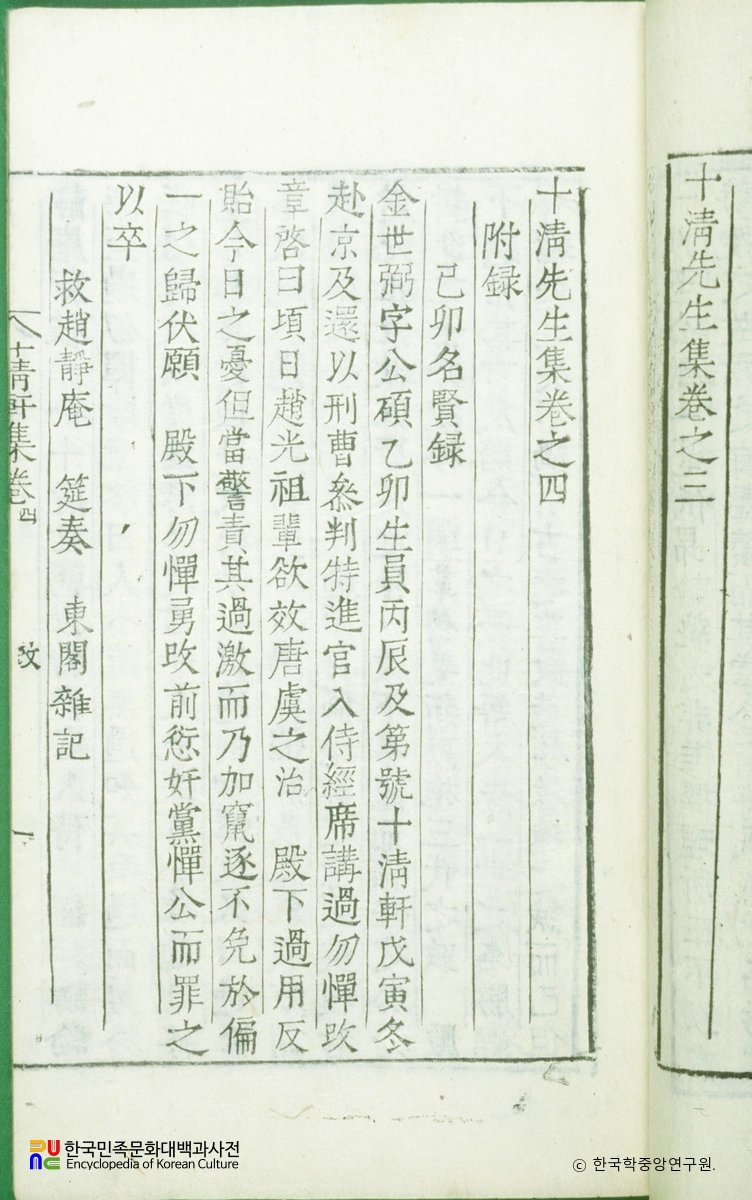 十淸先生集卷之三
十淸先生集卷之四
附録
己卯名賢録
金世弼字公碩乙卯生員丙辰及第號十淸軒戊寅冬
赴京及還以刑曹叅判特進官入侍經席講過勿憚改
章啓曰頃日趙光祖輩欲效唐虞之治 殿下過用反
貽今日之憂但當警責其過激而乃加竄逐不免於偏
一之歸伏願 殿下勿憚勇改前愆奸黨憚公而罪之
以卒
救趙靜庵 筵奏 東閣雜記
十淸軒集卷四 改 一
한국민족문화대백과사전
Encyclopedia of Korean Culture
ⓒ 한국학중앙연구원.